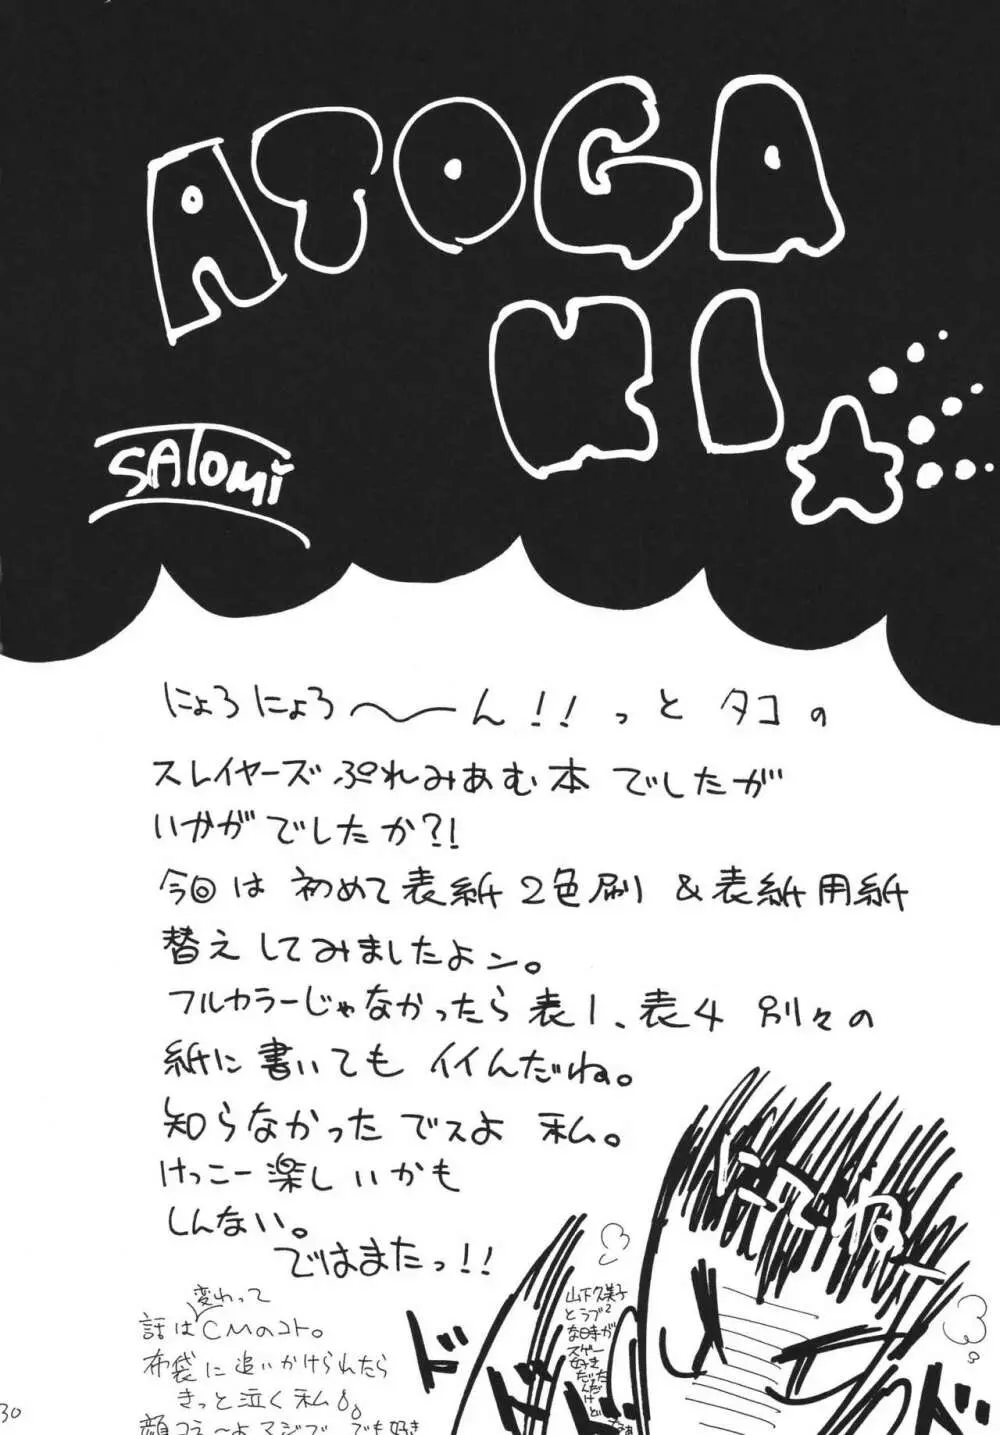 ATOGA
KI
SATOMI
にょろにょろ〜ん!!っと タコの
スレイヤーズぷれみあむ本 でしたが
いかがでしたか?!
今回は 初めて表紙2色刷 &表紙用紙
替えしてみましたよン。
フルカラーじゃなかったら 表1、表4 別々の
紙に書いても イイんだね。
知らなかったですよ 私。
けっこー楽しいかも
しんない。
ではまたっ!!
変わって
話はCMのコト。
布袋に追いかけられたら
きっと泣く私
顔コえ〜よ マジで でも好き
山下久美子
とラブ2
な時が
スゲー
好き
だった
んだ
けど
にてねー
ド
30